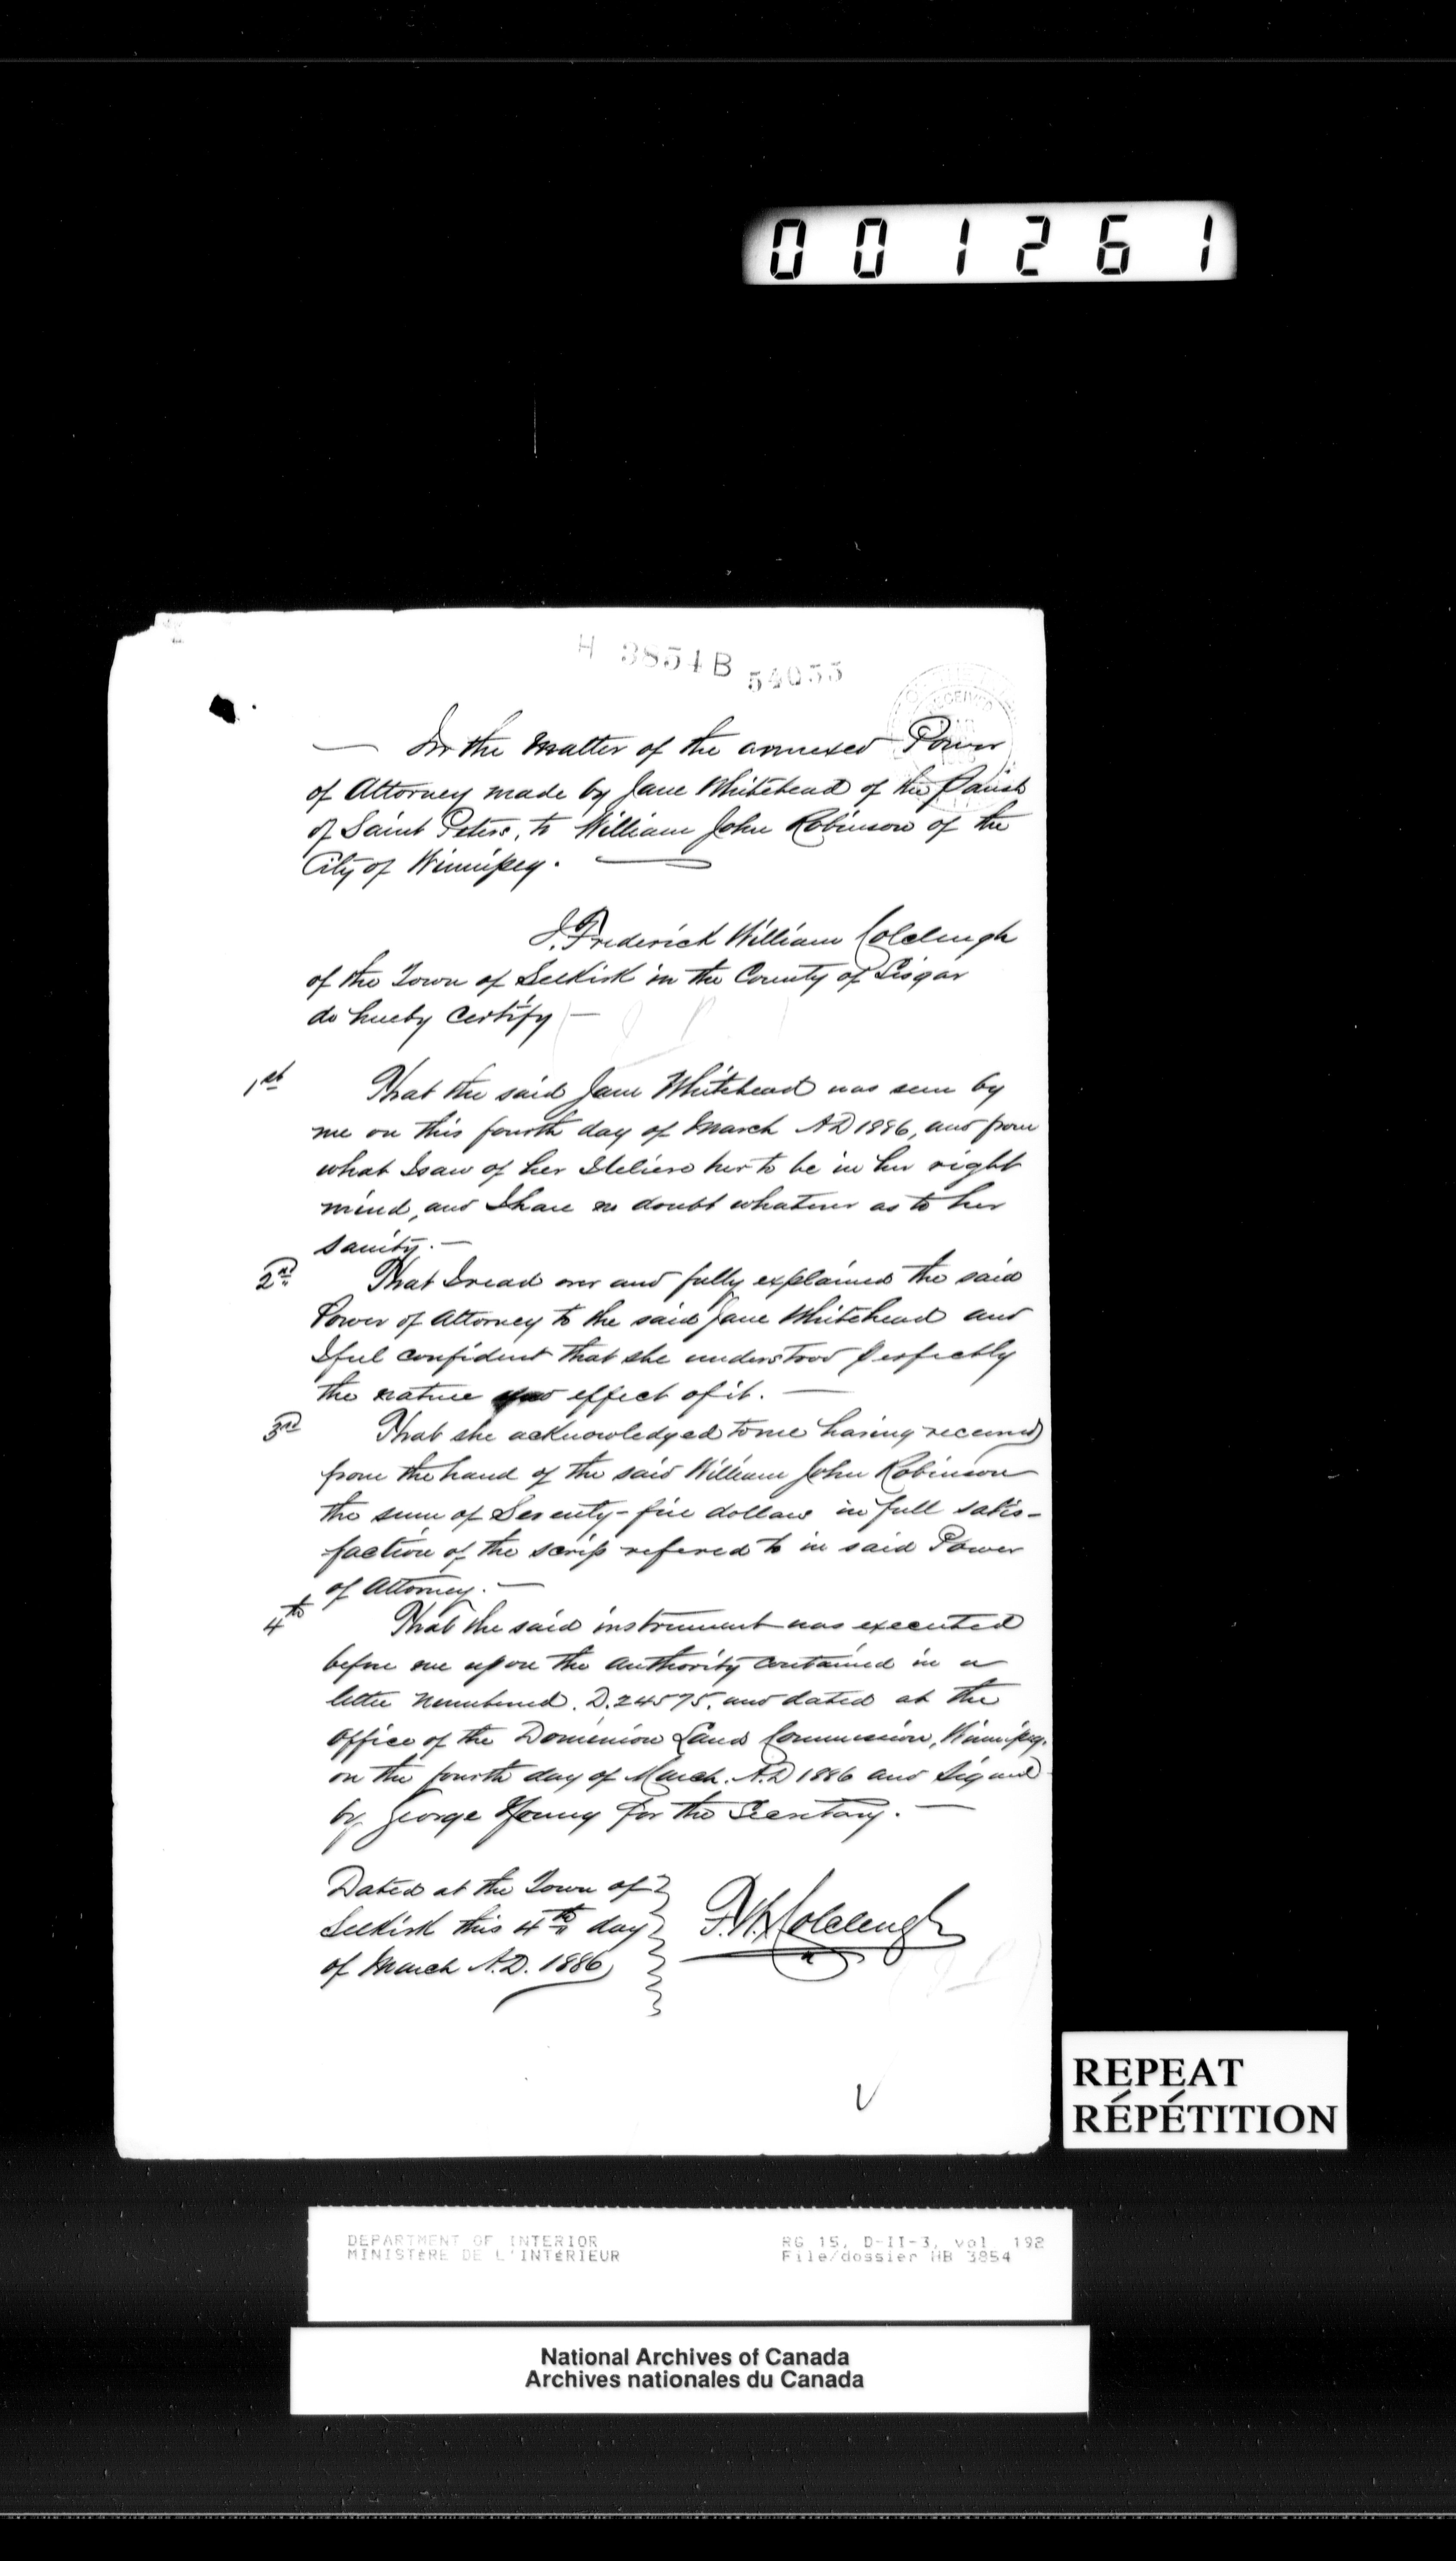 001261
H 3854B 54055
In the Matter of the annexed Power
of Attorney made by Jane Whitehead of the Parish
of Saint Peters, to William John Robinson of the
City of Winnipeg.
I, Frederick William Colcleugh
of the Town of Selkirk in the County of Lisgar
do hereby Certify —
1st That the said Jane Whitehead was seen by
me on this fourth day of March A.D 1886, and from
what I saw of her I believe her to be in her right
mind, and I have no doubt whatever as to her
sanity. —
2nd That I read over and fully explained the said
Power of Attorney to the said Jane Whitehead and
I feel confident that she understood perfectly
the nature and effect of it. —
3rd That she acknowledged to me having received
from the hand of the said William John Robinson
the sum of Seventy-five dollars in full satis-
faction of the scrip refered to in said Power
of Attorney. —
4th That the said instrument was executed
before me upon the authority contained in a
letter numbered. D. 24575. and dated at the
Office of the Dominion Lands Commission, Winnipeg.
on the fourth day of March. A.D 1886 and Signed
by George Young for the Secretary. —
Dated at the Town of
Selkirk this 4th day
of March A.D. 1886
F.W. Colcleugh
REPEAT
RÉPÉTITION
DEPARTMENT OF INTERIOR
MINISTÈRE DE L'INTÉRIEUR
RG 15, D-II-3, vol 192
File/dossier HB 3854
National Archives of Canada
Archives nationales du Canada